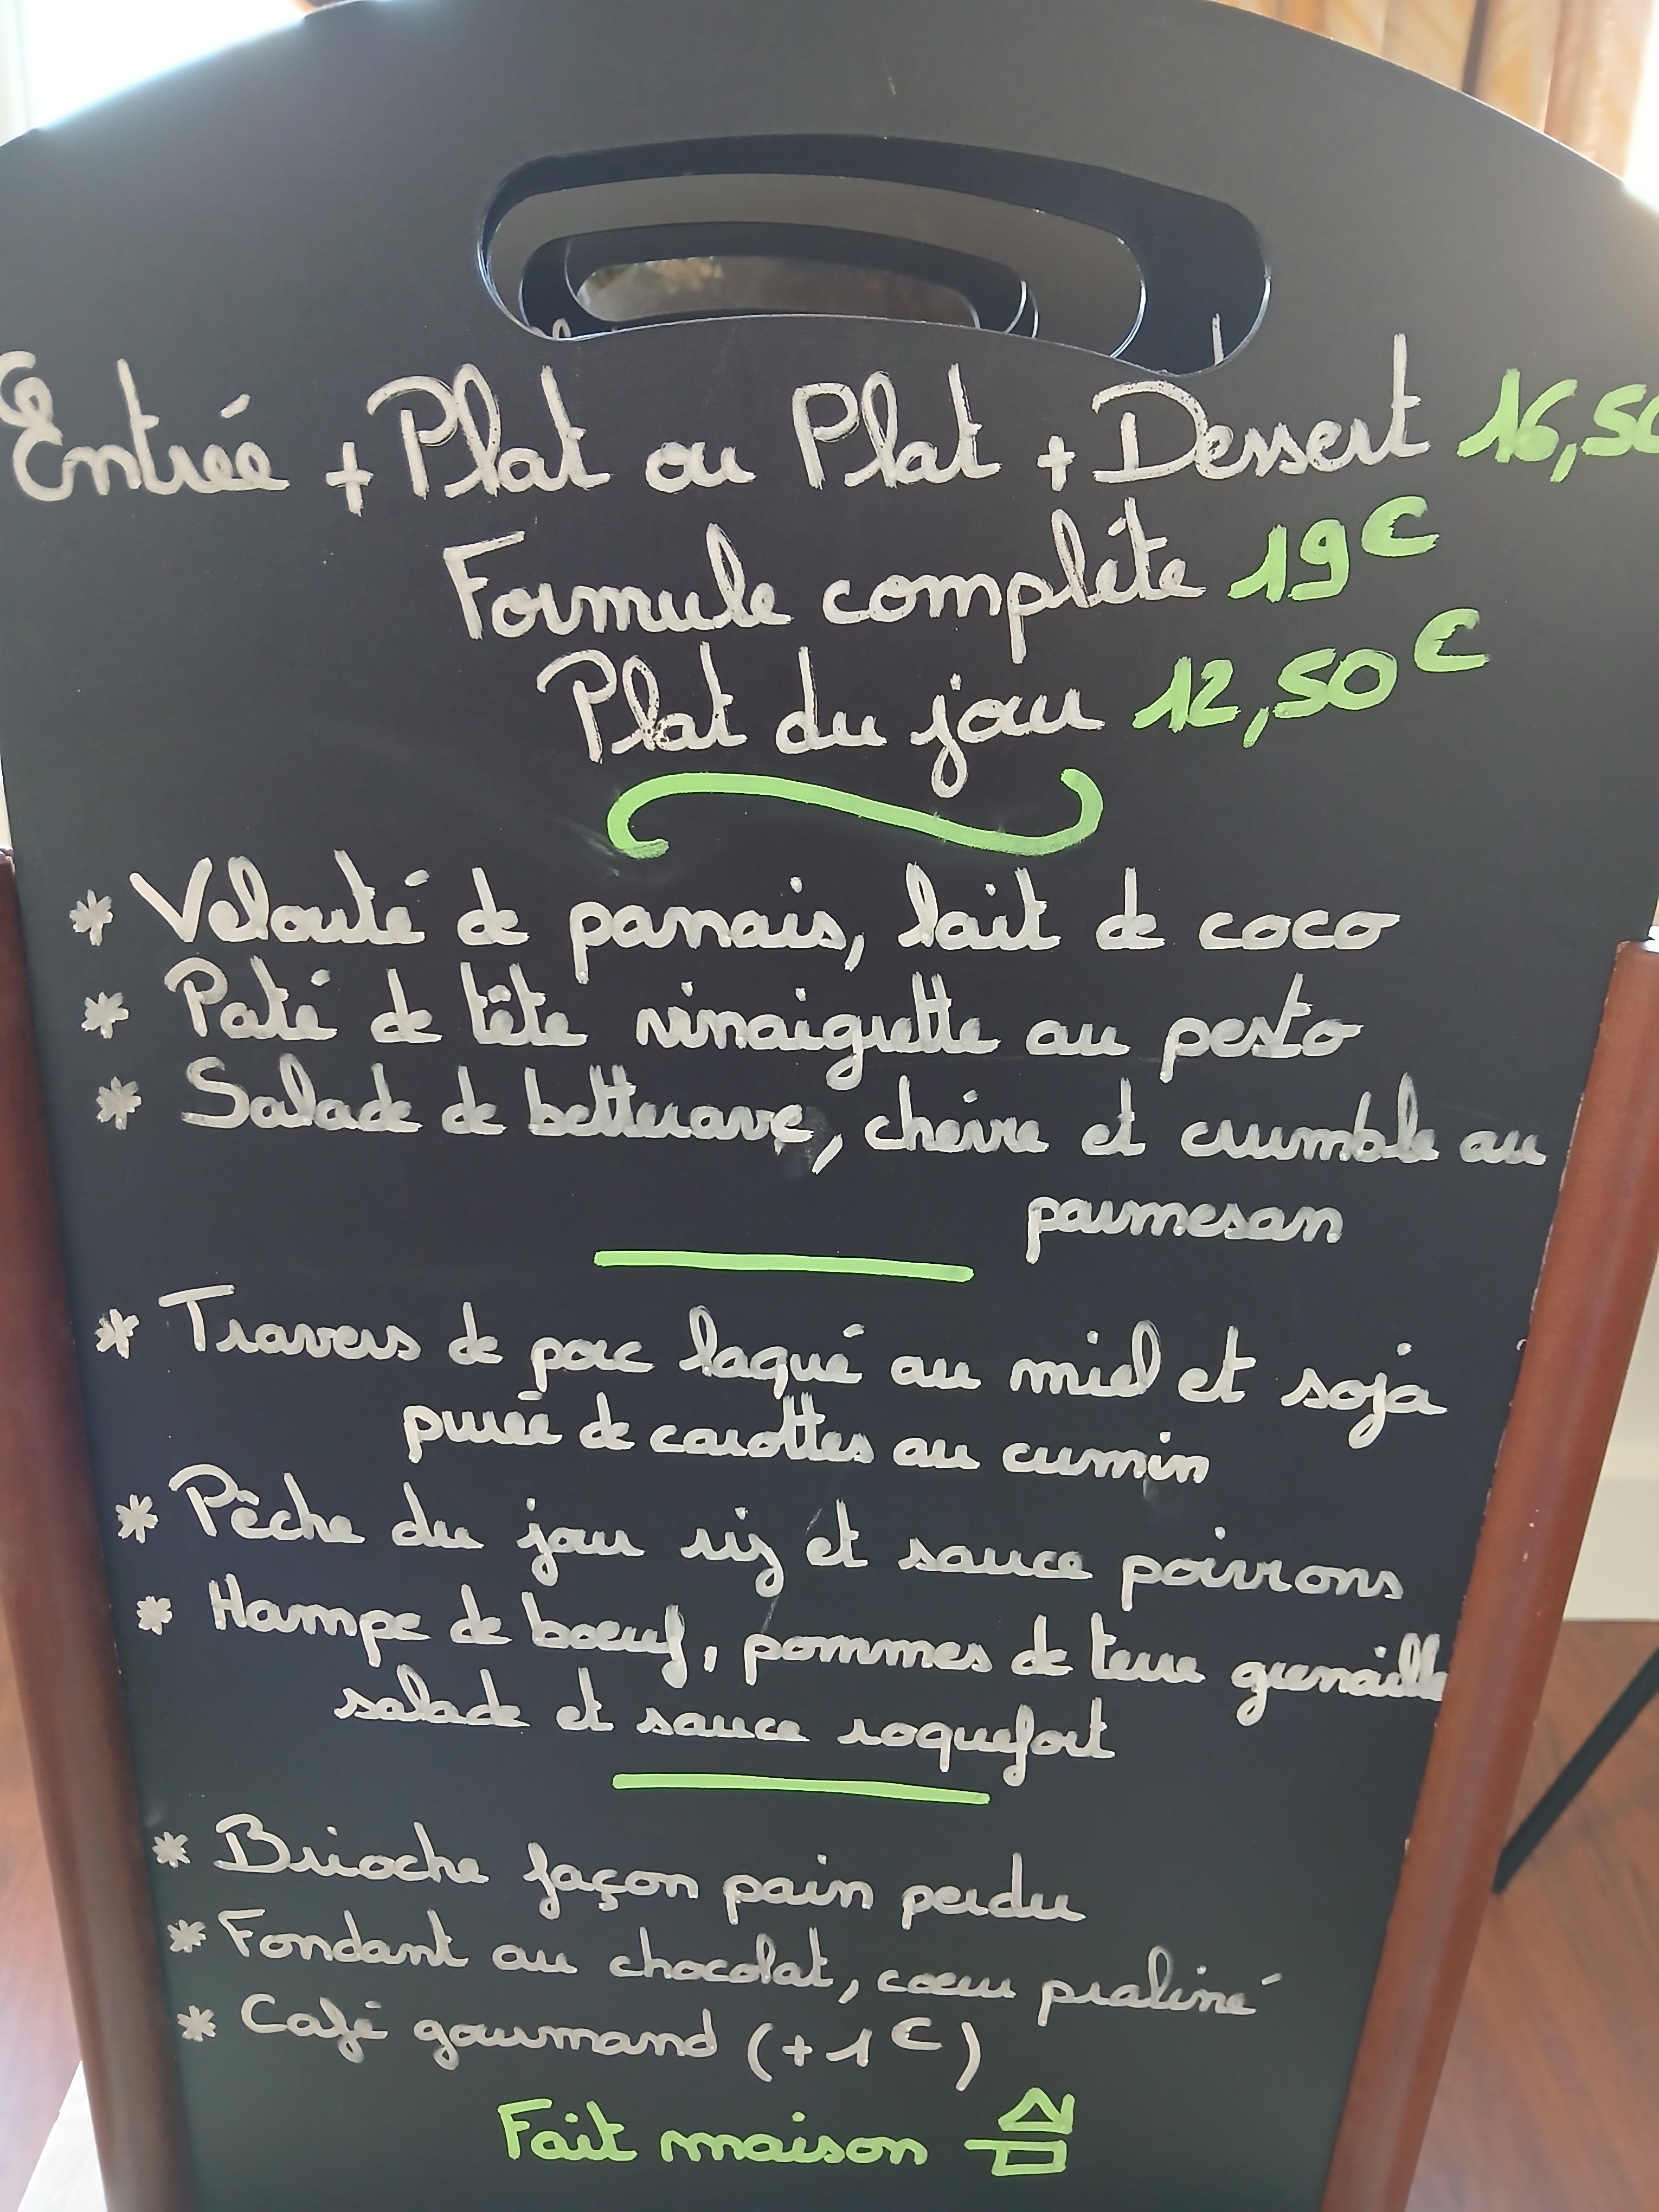 Entrée + Plat ou Plat + Dessert 16,50
Formule complète 19€
Plat du jour 12,50€
* Velouté de panais, lait de coco
* Paté de tête vinaigrette au pesto
* Salade de betterave, chèvre et crumble au
parmesan
* Travers de porc laqué au miel et soja
purée de carottes au cumin
* Pêche du jour riz et sauce poivrons
* Hampe de boeuf, pommes de terre grenaille
salade et sauce roquefort
* Brioche façon pain perdu
* Fondant au chocolat, coeur praliné
* Café gourmand (+1€)
Fait maison